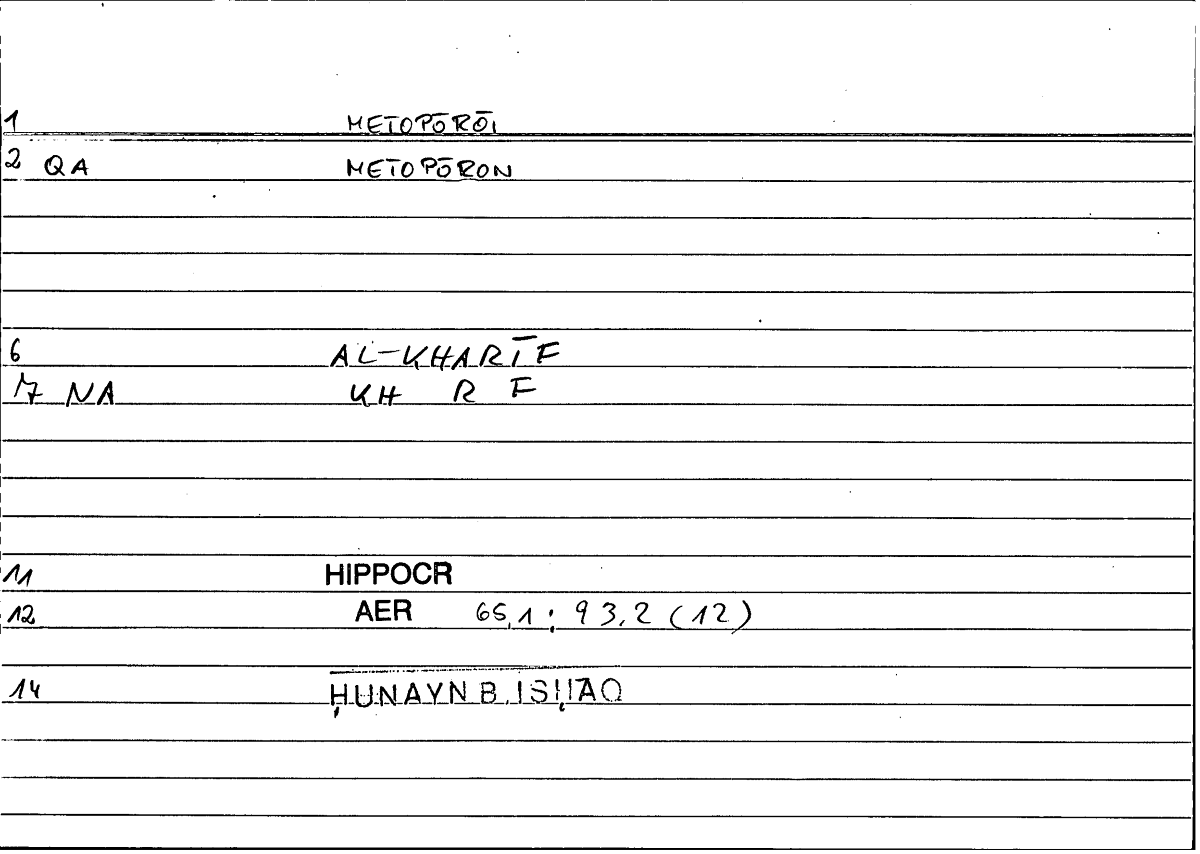 1 METOPŌRŌI
2 QA METOPŌRON
6 AL-KHARĪF
7 NA KH R F
11 HIPPOCR
12 AER 65,1 : 93,2 (12)
14 ḤUNAYN B. ISḤĀQ